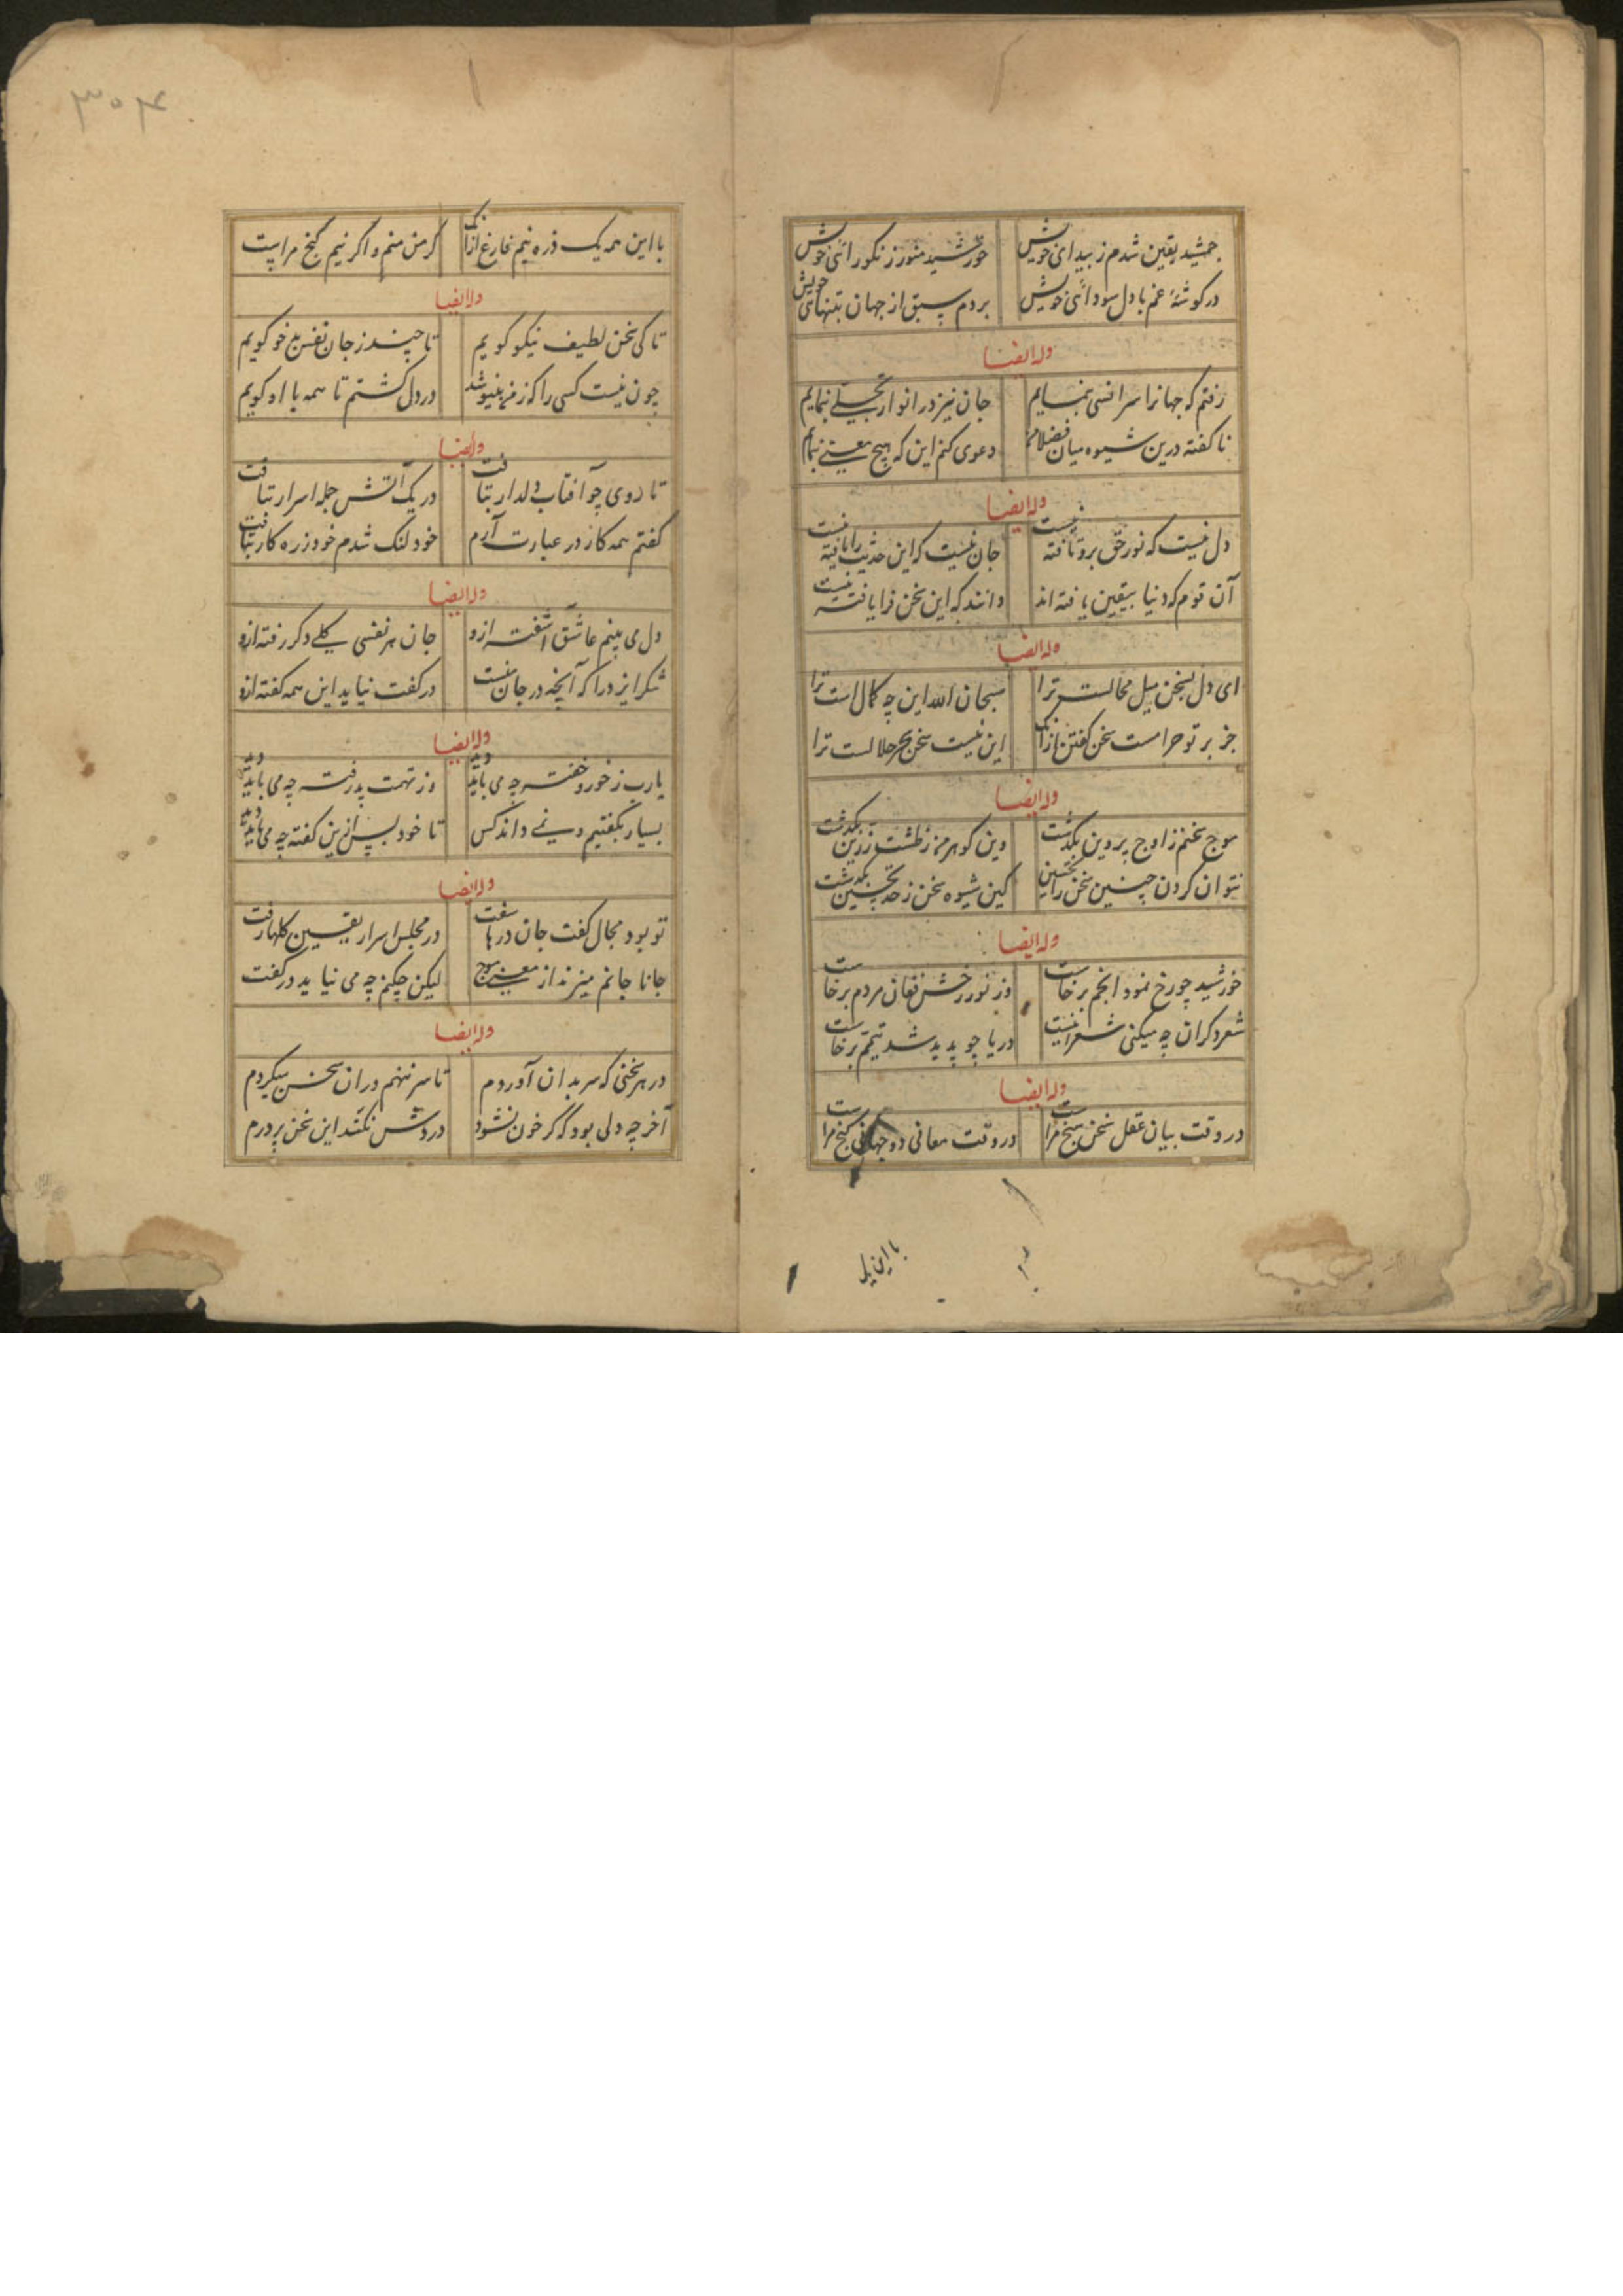 جمشید یقین شدم ز پیدائی خویش خورشید منور ز نکورائی خویش
در کوشهٔ غم با دل سودائی خویش بردم سبق از جهان بتنهائی خویش
وله ایضا
رفتم که جهانرا سرانسی بنمایم جان نیز در انوار تجلی بنمایم
نا کفته درین شیوه میان فضلا دعوی کنم این که هیچ معنی بنمایم
وله ایضا
دل نیست که نور حق برو تافته نیست جان نیست که این حدیث را یافته نیست
آن قوم که دنیا بیقین یافته اند دانند که این سخن فرا یافته نیست
وله ایضا
ای دل بسخن میل محالست ترا سبحان الله این چه کمال است ترا
جز بر تو حرامست سخن کفتن ازآنک این نیست سخن سحر حلالست ترا
وله ایضا
موج سخنم ز اوج پروین بکذشت وین کوهر من ز طشت زرین بکذشت
نتوان کردن چنین سخن را تحسین کین شیوه سخن ز حد تحسین بکذشت
وله ایضا
خورشید چو رخ نمود انجم برخاست وز نور رخش فغان مردم برخاست
شعر دکران چه میکنی شعر اینست دریا چو پدید شد تیمم برخاست
وله ایضا
در وقت بیان عقل سخن سنج مراست در وقت معانی دو جهانی کنج مراست
با این یک
۳۰۴
با این همه یک ذره نیم فارغ ازآنک کر من منم و اکر نیم کنج مراست
وله ایضا
تا کی سخن لطیف نیکو کویم تا چند ز جان نفس بدخو کویم
چون نیست کسی را که ز من بنیوشد در دل کشتم تا همه با او کویم
وله ایضا
تا روی چو آفتاب دلدار بتافت در یک آتش جمله اسرار بتافت
کفتم همه کار در عبارت آرم خود لنک شدم خود ز ره کار بتافت
وله ایضا
دل می بینم عاشق آشفته ازو جان هر نفسی کلی دکر رفته ازو
شکر ایزد را که آنچه در جان منست در کفت نیاید این همه کفته ازو
وله ایضا
یا رب ز خور و خفته چه می باید دید وز تهمت پذرفته چه می باید دید
بسیار بکفتیم و نمی داند کس تا خود پس ازین کفته چه می باید دید
وله ایضا
تو بود مجال کفت جان درها سفت در مجلس اسرار یقین کلها رفت
جانا جانم میزند از معنی موج لیکن چکنم چه می نیاید در کفت
وله ایضا
در هر سخنی که سر بدان آوردم تا سر ننهم در ان سخن میکردم
آخر چه دلی بود که کر خون نشود دروش نکند این سخن پر دردم